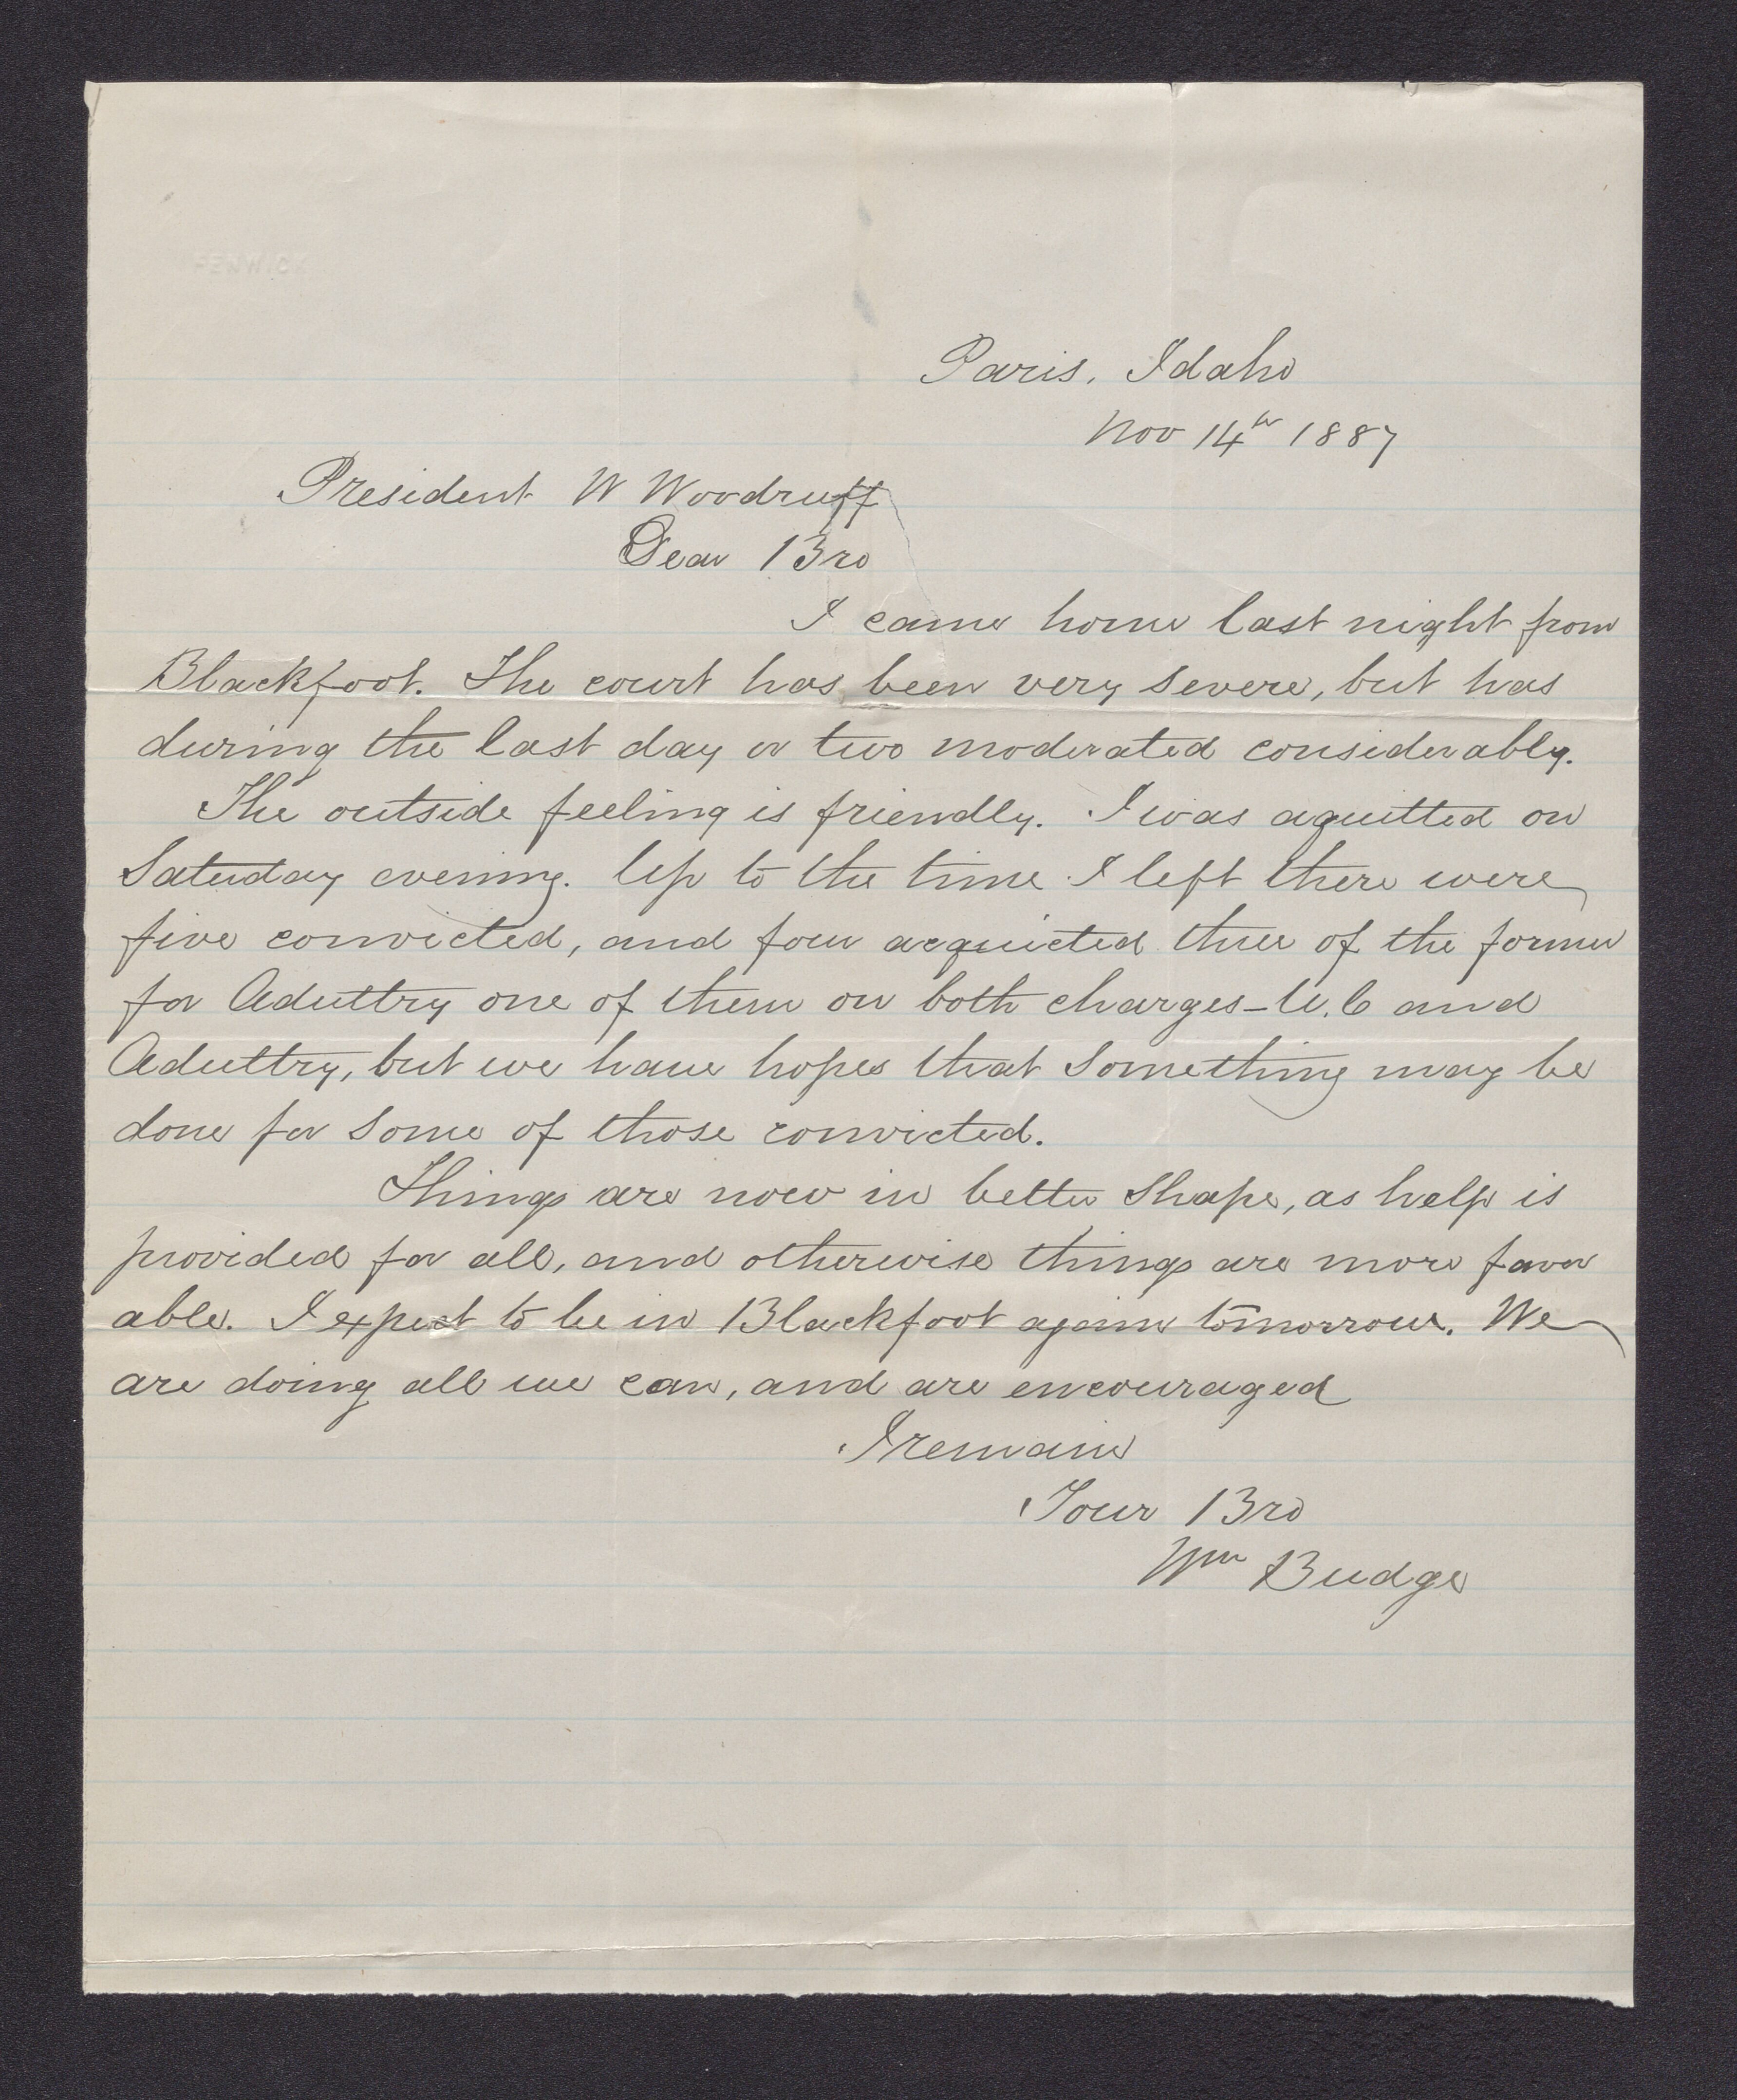 FENWICK
Paris, Idaho
Nov 14th 1887
President W Woodruff
Dear Bro
I came home last night from
Blackfoot. The court has been very severe, but has
during the last day or two moderated considerably.
The outside feeling is friendly. I was aquitted on
Satuday evening. Up to the time I left there were
five convicted, and four acquicted three of the former
for Adulttry one of them on both charges - U.C and
Adulttry, but we have hopes that something may be
done for some of those convicted.
Things are now in better shape, as help is
provided for all, and otherwise things are more favor
able. I expect to be in Blackfoot again tomorrow. We
are doing all we can, and are encouraged
I remain
Your Bro
Wm Budge